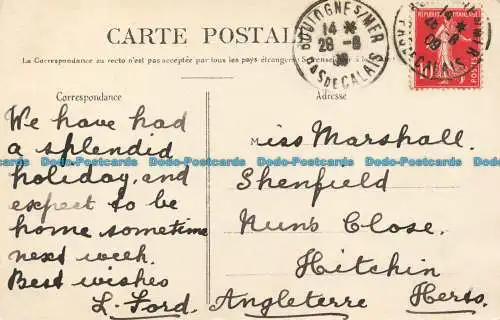 CARTE POSTALE
La Correspondance au recto n'est pas acceptée par tous les pays étrangers
Correspondance
Adresse
BOULOGNE S/MER
14 *
28 - 8
PAS DE CALAIS
REPUBLIQUE FRANÇAISE
10
POSTES
We have had
a splendid
holiday, and
expect to be
home sometime
next week.
Best wishes
L. Ford.
Miss Marshall.
Shenfield
Nun's Close.
Hitchin
Angleterre Herts.
Dodo-Postcards Dodo-Postcards Dodo-Postcards Dodo-Postcards